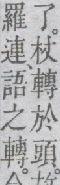 了。杖轉於頭。
羅連語之轉。